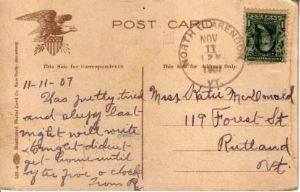 POST CARD
This Side for Correspondence
This Side for Address
NORTH CLARENDON
NOV
11
1907
VT.
11-11-07
Was pretty tired
and sleepy last
night will write
tonight didn't
get home until
by the five o clock
From R
Miss Katie McDonald
119 Forest St
Rutland
Vt.